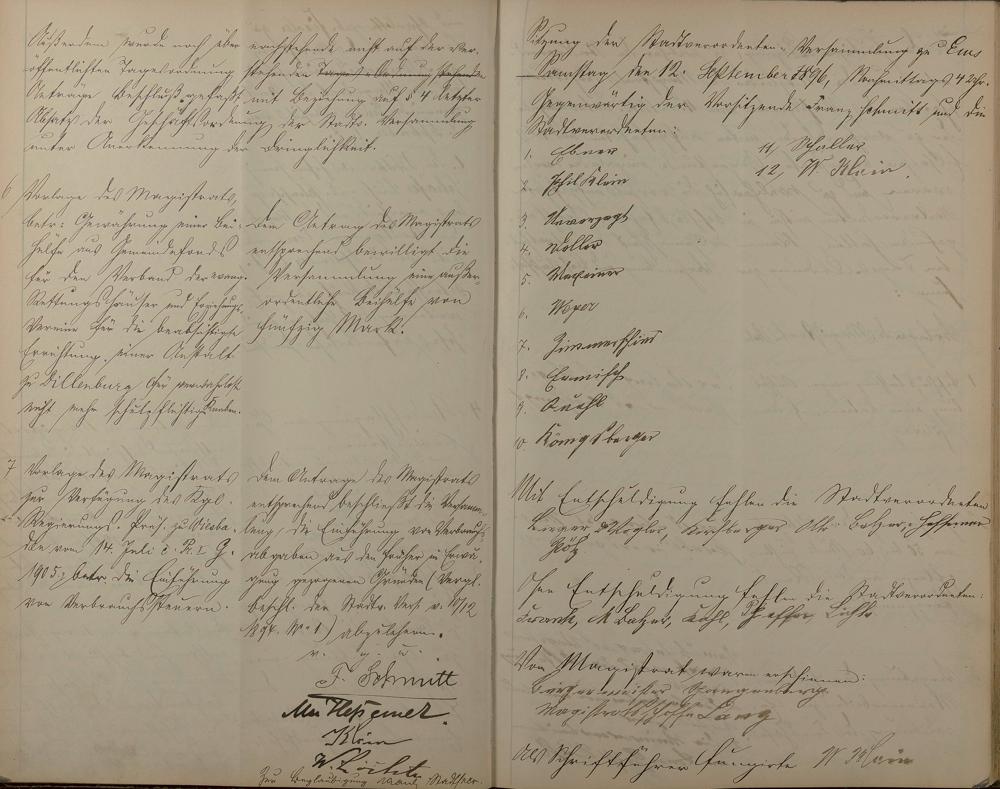 Außerdem wurde noch über nachstehende nicht auf der ver-
öffentlichten Tagesordnung stehenden
Anträge Beschluß gefaßt mit Beziehung auf § 4 letzter
Absatz der Geschäftsordnung der Stadtv. Versammlung
unter Anerkennung der Dringlichkeit.
6
Vorlage des Magistrats,
betr: Gewährung einer Bei-
hülfe aus Gemeindefonds
für den Verband der evang.
Rettungshäuser und Erziehungs-
Vereine für die beabsichtigte
Errichtung einer Anstalt
zu Dillenburg für verwahrloste
nicht mehr schulpflichtige Knaben.
Dem Antrag des Magistrats
entsprechend bewilligt die
Versammlung eine außer-
ordentliche Beihülfe von
fünfzig Mark.
7
Vorlage des Magistrats
zur Verfügung des Kgl.
Regierungs. Präs. zu Wiesba-
den vom 14. Juli c. Pr. I G.
1905, betr. die Einführung
von Verbrauchssteuern.
Dem Antrage des Magistrats
entsprechend beschließt die Versamm-
lung, die Einführung von Verbrauchs-
abgaben aus den früher in Erwä-
gung gezogenen Gründen (Vergl.
Beschl. der Stadtv. Vers. v. 10/12
1894. No 1) abzulehnen.
v. g. u.
F. Schmitt
Klein
Zur Beglaubigung
Sitzung der Stadtverordneten-Versammlung zu Ems
Samstag, den 12. September 1896, Nachmittags 4 Uhr.
Gegenwärtig der Vorsitzende Franz Schmitt und die
Stadtverordneten:
1. Ebner
2. Phil Klein
3. Unverzagt
4.
5.
6.
7. Zimmerschied
8. Ermisch
9. Quehl
10. Königsberger
11, Schaller
12, W. Klein.
Mit Entschuldigung fehlen die Stadtverordneten
Vogler, Otto Balzer,
Ohne Entschuldigung fehlen die Stadtverordneten:
Frank, M Balzer, Lichte
Vom Magistrat waren erschienen:
Bürgermeister Spangenberg
Magistratsschöffe Lang
Als Schriftführer fungirte W Klein